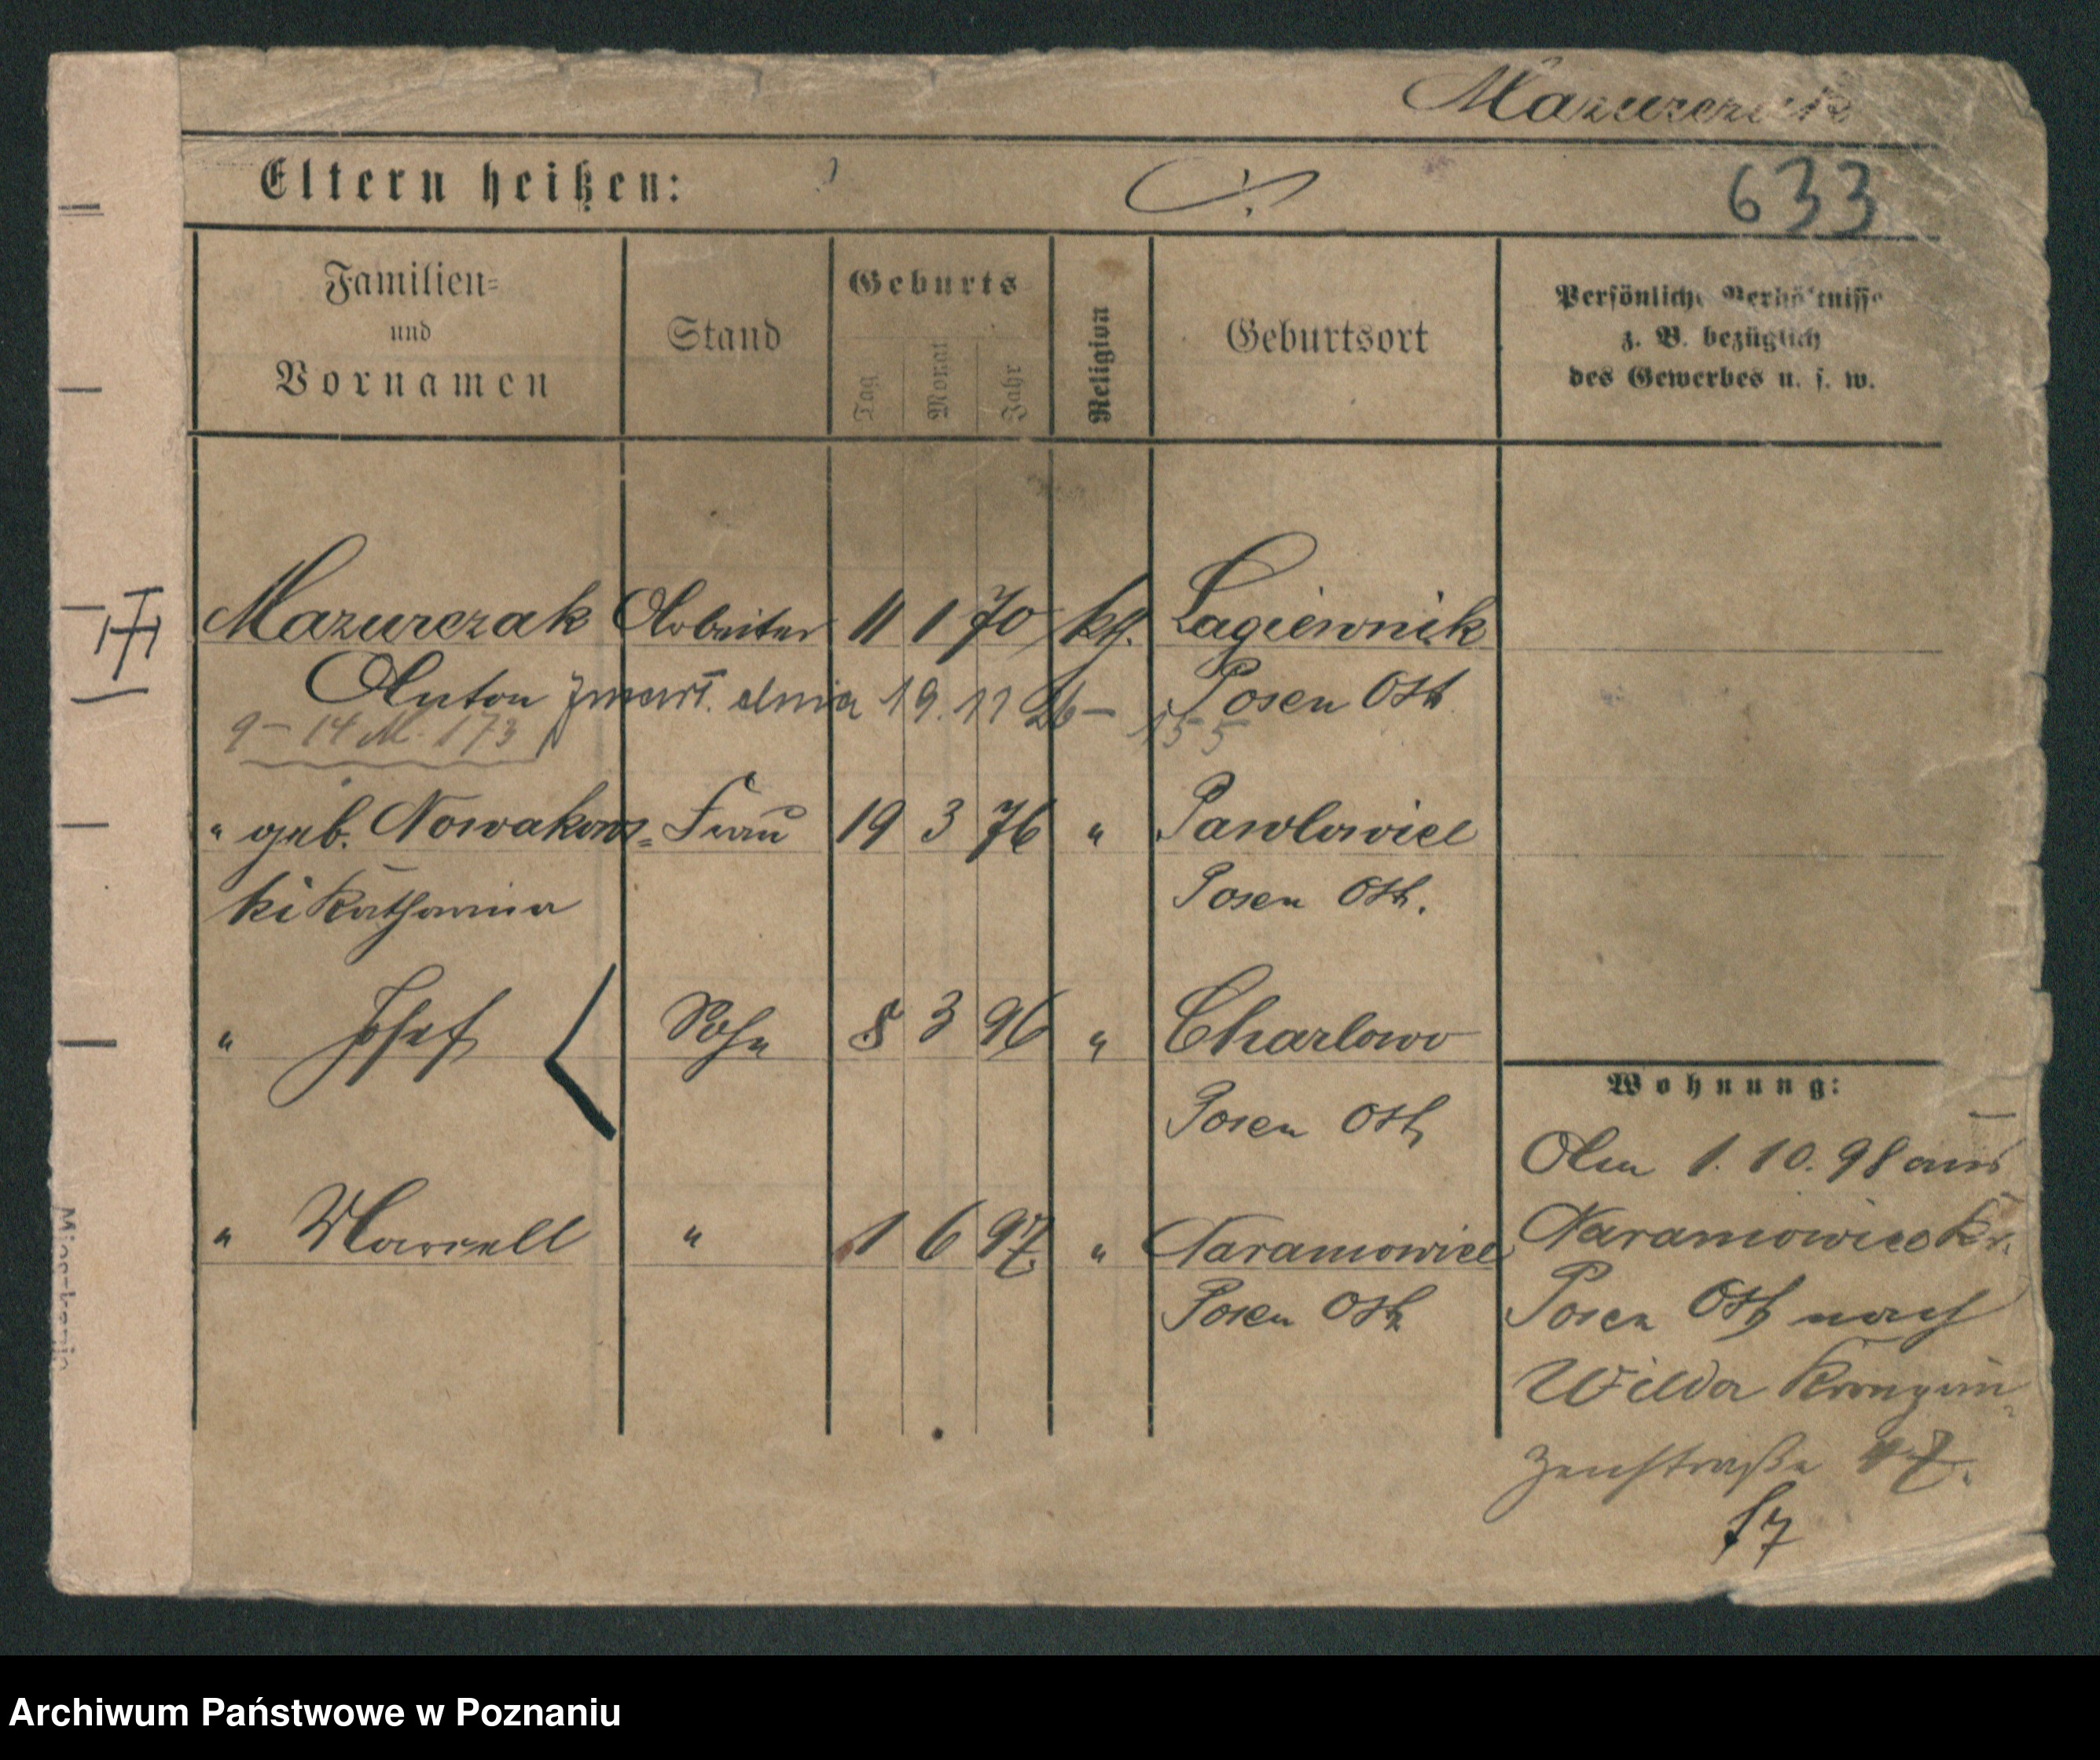 Mazurczak
Eltern heißen:
633
Familien=
und
Vornamen
Stand
Geburts
Tag
Monat
Jahr
Religion
Geburtsort
Persönliche Verhältnisse
z. B. bezüglich
des Gewerbes u. s. w.
Mazurczak Arbeiter 11 1 70 kth. Lagiewnik
Anton zmarł. dnia 19. 11 26 – 155 Posen Ost
9 – 14 M. 173
" geb. Nowakows= Frau 19 3 76 " Pawlowice
ki Katharina Posen Ost.
" Josef Sohn 8 3 96 " Charlowo
Posen Ost
" Marcell " 1 6 97 " Naramowice
Posen Ost
Wohnung:
Am 1. 10. 98 aus
Naramowice Kr.
Posen Ost nach
Wilda Kronprin
zenstraße 47.
Archiwum Państwowe w Poznaniu